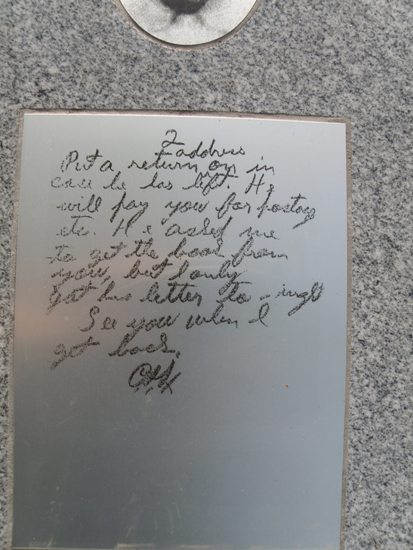 address
Put a return on in
case he has left. He
will pay you for postage
etc. He asked me
to get the book from
you, but I only
got his letter to-night
See you when I
get back.